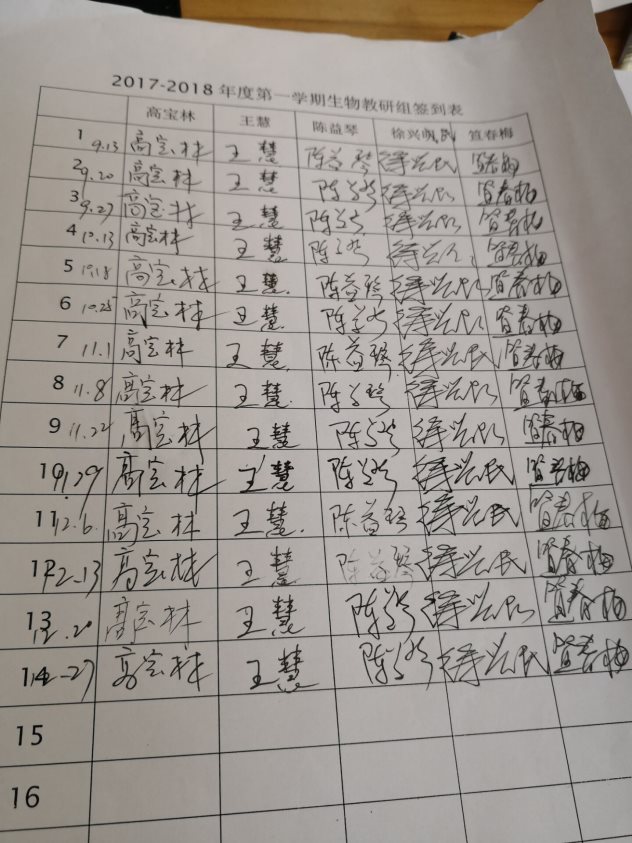 2017-2018 年度第一学期生物教研组签到表
高宝林 王慧 陈益琴 徐兴萌 民 笪春梅
1 9.13 高宝林 王慧 陈益琴 徐兴民 笪春梅
2 9.20 高宝林 王慧 陈益琴 徐兴民 笪春梅
3 9.27 高宝林 王慧 陈益琴 徐兴民 笪春梅
4 10.13 高宝林 王慧 陈益琴 徐兴民 笪春梅
5 10.18 高宝林 王慧 陈益琴 徐兴民 笪春梅
6 10.25 高宝林 王慧 陈益琴 徐兴民 笪春梅
7 11.1 高宝林 王慧 陈益琴 徐兴民 笪春梅
8 11.8 高宝林 王慧 陈益琴 徐兴民 笪春梅
9 11.22 高宝林 王慧 陈益琴 徐兴民 笪春梅
10 11.29 高宝林 王慧 陈益琴 徐兴民 笪春梅
11 12.6 高宝林 王慧 陈益琴 徐兴民 笪春梅
12 12.13 高宝林 王慧 陈益琴 徐兴民 笪春梅
13 12.20 高宝林 王慧 陈益琴 徐兴民 笪春梅
14 12.27 高宝林 王慧 陈益琴 徐兴民 笪春梅
15
16